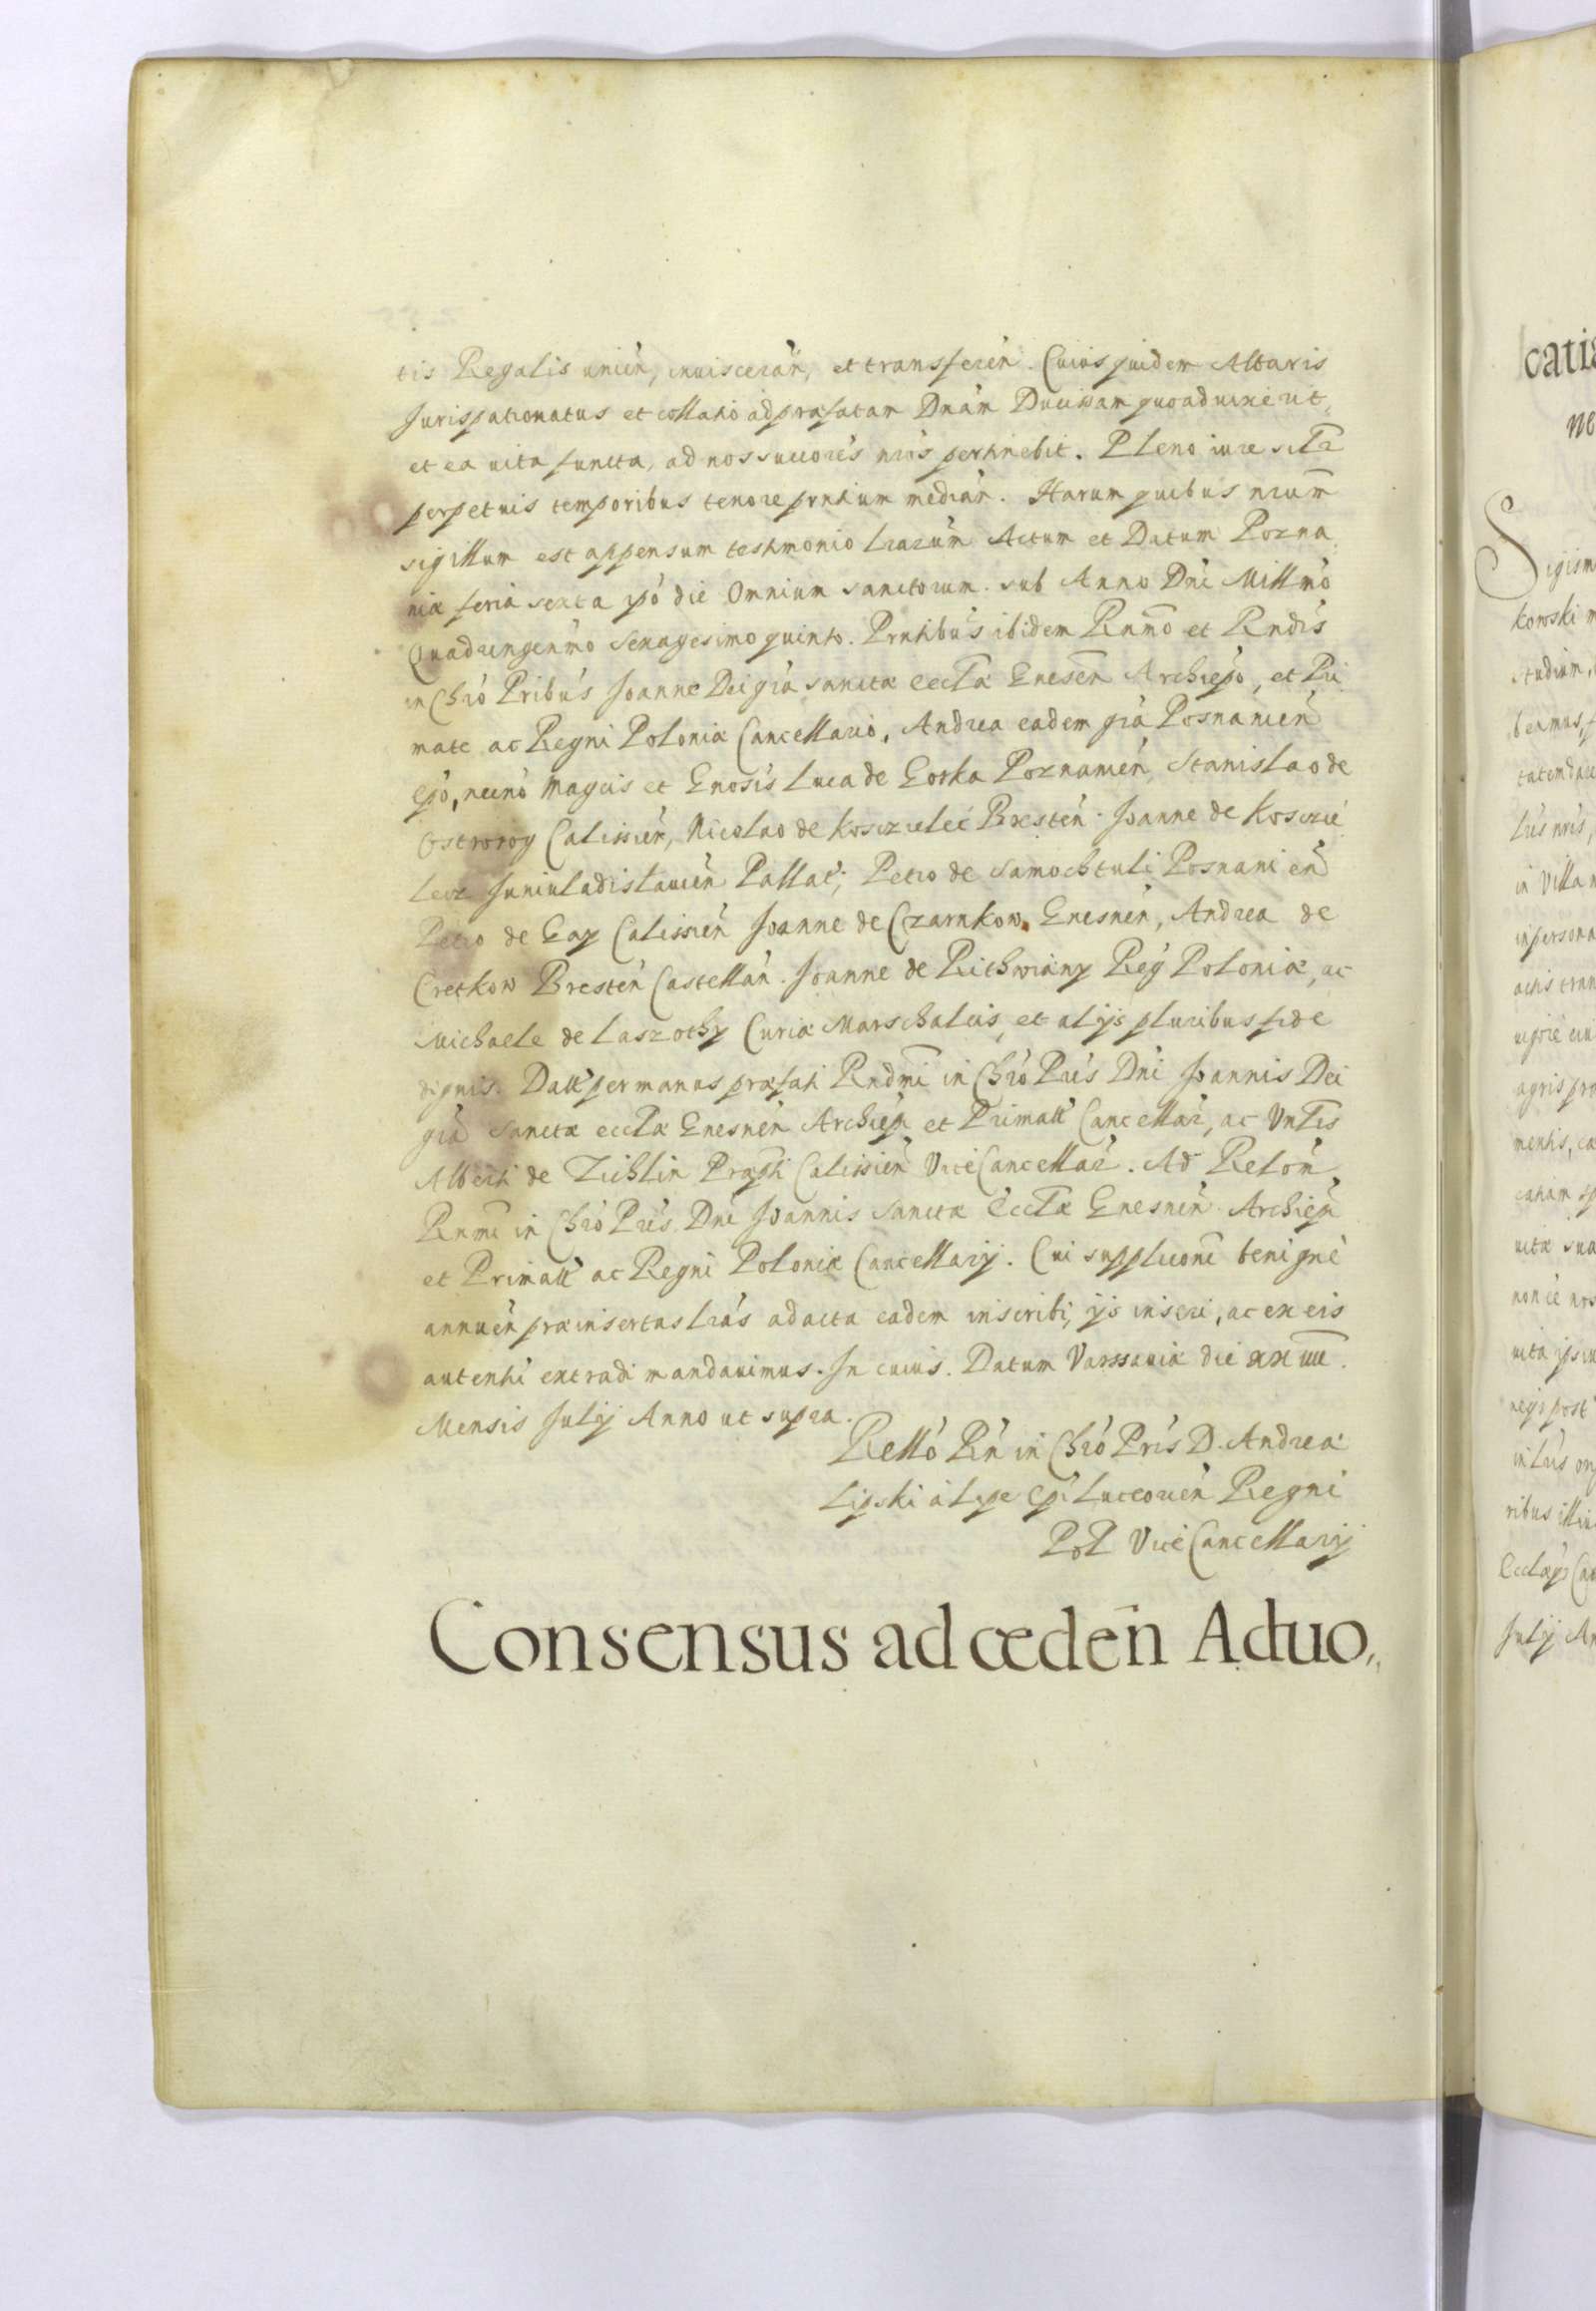 tis Regalis unień, inuisceráń, et transferéń. Cuius quidem Altaris
Jurispatronatus et collatio ad præfatam Dnám Ducissam quoad uixerit,
et ea uita functa, ad nos succoŕes nŕos pertinebit. Pleno iure
perpetuis temporibus tenore prntium mediáń. Harum quibus nrum̄
sigillum est appensum testimonio lrarum̄ Actum et Datum Pozna„
niæ feria sexta pó die Omnium sanctorum. sub Anno Dni Millmó
Quadringenmó Sexagesimo quinto. Prntibús ibidem Rnmo et Rndis
in Chró Pribús Joanne Dei gŕa sanctæ eccłæ Gnesen̄ Archiepó, et Pri„
mate ac Regni Poloniæ Cancellario, Andrea eadem gŕa Posnanień
Epó, necnó Magcis et Gnosis Luca de Gorka Poznanień, Stanislao de
Ostrorog Calissień, Nicolao de Kosczielec Brestéń. Joanne de Kosczie
lecz Juniuladislauień Pallat; Petro de Samochtuli Posnanień
Petro de Gay Calissień Joanne de Czarnkow. Gnesnéń, Andrea de
Cretkow Brestéń Castelláń. Joanne de Rithwiany Reg Poloniæ, ac
Michaele de Laszothy Curiæ Marschalcis, et alijs pluribus fide
dignis. Datt per manus præfati Rndmi in Chró Prís Dni Joannis Dei
gŕa Sanctæ eccłæ Gnesnéń Archiep̄i et Primatt Cancellar, ac Vnłis
Alberti de Zichlin Præpti Calissień ViceCancellar. Ad Relón
Rnmi in Chró Prís Dni Joannis Sanctæ Eccłæ Gnesnéń Archiep̄i
et Primatt ac Regni Poloniæ Cancellarij. Cui suppliconi benigné
annuéń præinsertas lrás ad acta eadem inscribi, ijs inseri, ac ex eis
autenti extradi mandauimus. In cuius. Datum Varssauiæ die xx iiii.
Mensis Julij Anno ut supra.
Relló Rń in Chró Prís D. Andreæ
Lipski à Lipe Epi Luceorień Regni
Poł ViceCancellarij
Consensus ad cedeñ Aduo„
catiæ
Sigism
kowski
studium,
beamus,
in Villa
in persona
actis tran
agris pro
mentis, ca
uitæ suæ
uita ipsiu
negi post
ribus illiu
Julij An